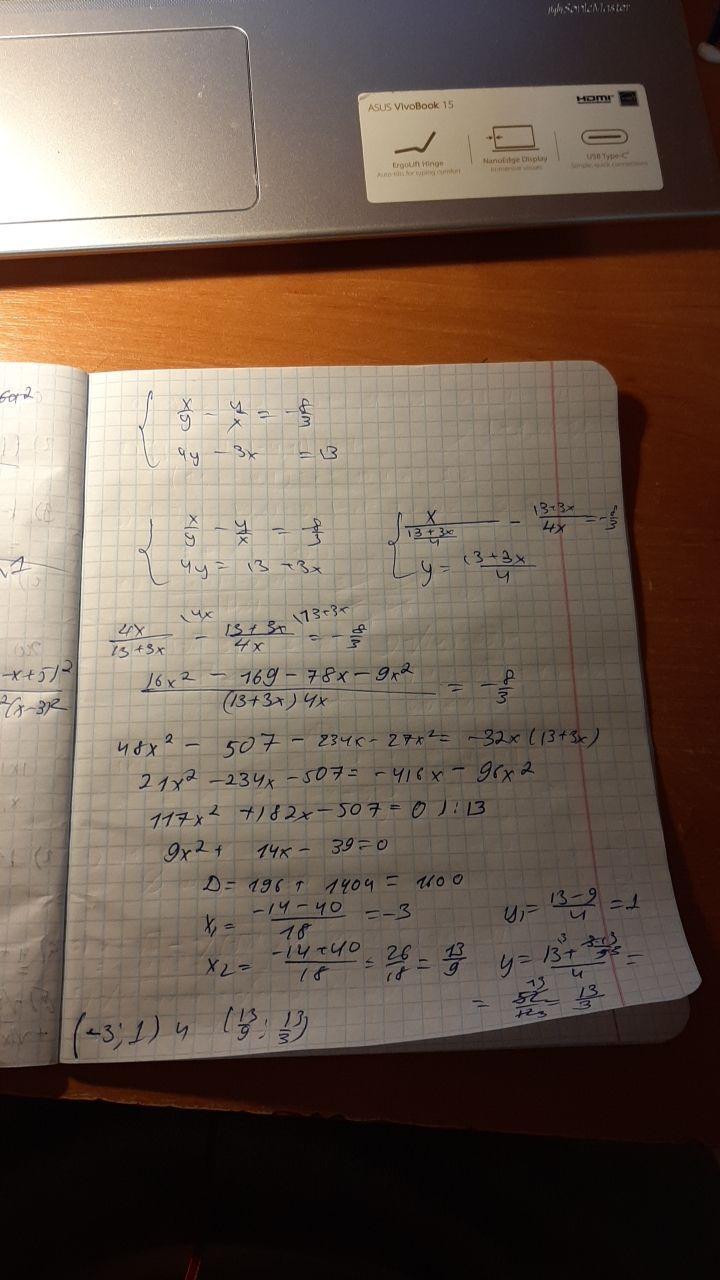 SonicMaster
ASUS VivoBook 15
HDMI
ErgoLift Hinge
Auto-tilts for typing comfort
NanoEdge Display
Immersive visuals
USB Type-C
Simple, quick connections
x/y - y/x = -8/3
4y - 3x = 13
x/y - y/x = -8/3
4y = 13 + 3x
x/((13+3x)/4) - (13+3x)/4x = -8/3
y = (13+3x)/4
4x/(13+3x) \4x - (13+3x)/4x \13+3x = -8/3
(16x² - 169 - 78x - 9x²)/((13+3x)4x) = -8/3
48x² - 507 - 234x - 27x² = -32x(13+3x)
21x² - 234x - 507 = -416x - 96x²
117x² + 182x - 507 = 0 ) : 13
9x² + 14x - 39 = 0
D = 196 + 1404 = 1600
x₁ = (-14-40)/18 = -3
y₁ = (13-9)/4 = 1
x₂ = (-14+40)/18 = 26/18 = 13/9
= 13/3
(-3; 1) и (13/9; 13/3)
-x+5)²
²(x-3)²